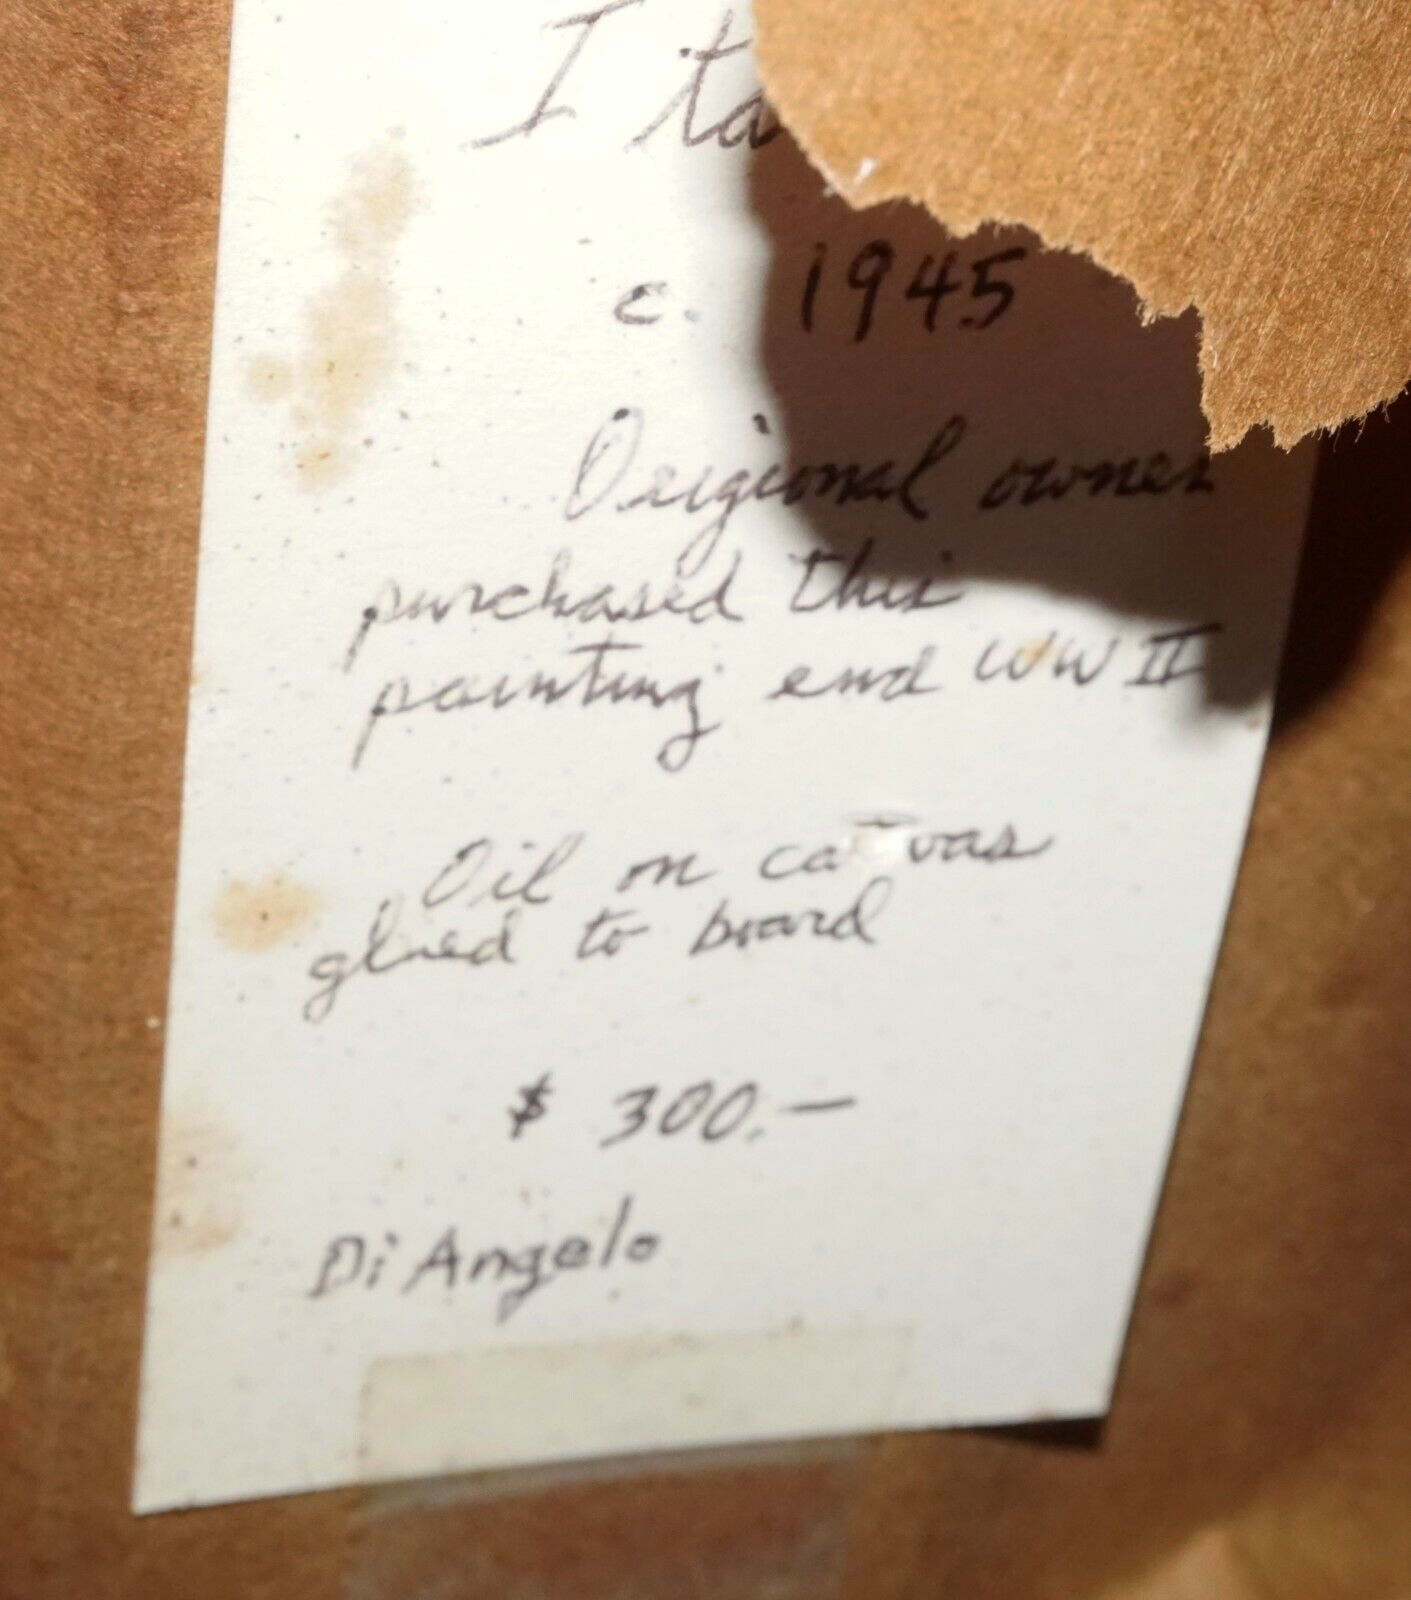 Ita
c. 1945
Origional owner
purchased this
painting end WW II
Oil on canvas
glued to board
$ 300.—
Di Angelo